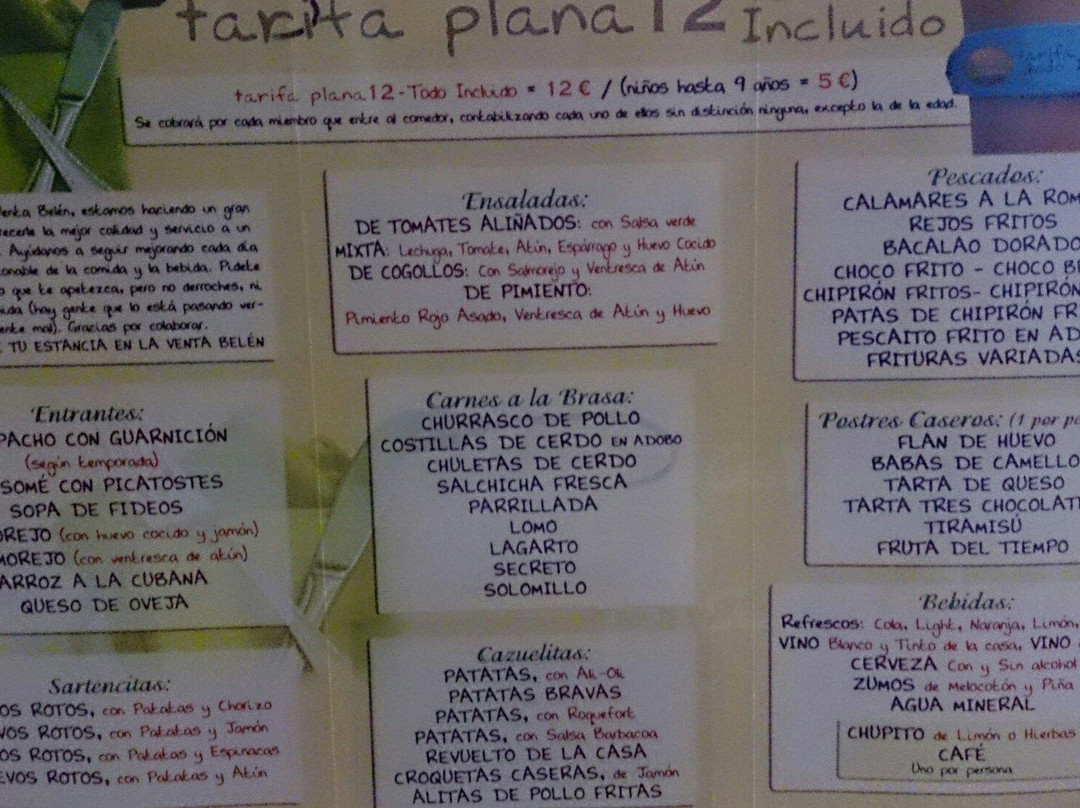 tarifa plana 12 Incluido
tarifa plana 12 - Todo Incluido = 12 € / (niños hasta 9 años = 5 €)
Se cobrará por cada miembro que entre al comedor, contabilizando cada uno de ellos sin distinción ninguna, excepto la de la edad.
Venta Belén, estamos haciendo un gran
recerte la mejor calidad y servicio a un
. Ayúdanos a seguir mejorando cada día
onable de la comida y la bebida. Pídete
o que te apetezca, pero no derroches, ni
ida (hay gente que lo está pasando ver-
ente mal). Gracias por colaborar.
TU ESTANCIA EN LA VENTA BELÉN
Entrantes:
PACHO CON GUARNICIÓN
(según temporada)
SOMÉ CON PICATOSTES
SOPA DE FIDEOS
OREJO (con huevo cocido y jamón)
MOREJO (con ventresca de atún)
ARROZ A LA CUBANA
QUESO DE OVEJA
Sartencitas:
OS ROTOS, con Patatas y Chorizo
VOS ROTOS, con Patatas y Jamón
OS ROTOS, con Patatas y Espinacas
EVOS ROTOS, con Patatas y Atún
Ensaladas:
DE TOMATES ALIÑADOS: con Salsa verde
MIXTA: Lechuga, Tomate, Atún, Espárrago y Huevo Cocido
DE COGOLLOS: Con Salmorejo y Ventresca de Atún
DE PIMIENTO:
Pimiento Rojo Asado, Ventresca de Atún y Huevo
Carnes a la Brasa:
CHURRASCO DE POLLO
COSTILLAS DE CERDO EN ADOBO
CHULETAS DE CERDO
SALCHICHA FRESCA
PARRILLADA
LOMO
LAGARTO
SECRETO
SOLOMILLO
Cazuelitas:
PATATAS, con Ali-Oli
PATATAS BRAVAS
PATATAS, con Roquefort
PATATAS, con Salsa Barbacoa
REVUELTO DE LA CASA
CROQUETAS CASERAS, de Jamón
ALITAS DE POLLO FRITAS
Pescados:
CALAMARES A LA ROM
REJOS FRITOS
BACALAO DORADO
CHOCO FRITO - CHOCO B
CHIPIRÓN FRITOS- CHIPIRÓN
PATAS DE CHIPIRÓN FR
PESCAITO FRITO EN AD
FRITURAS VARIADAS
Postres Caseros: (1 por pe
FLAN DE HUEVO
BABAS DE CAMELLO
TARTA DE QUESO
TARTA TRES CHOCOLAT
TIRAMISÚ
FRUTA DEL TIEMPO
Bebidas:
Refrescos: Cola, Light, Naranja, Limón,
VINO Blanco y Tinto de la casa, VINO
CERVEZA Con y Sin alcohol
ZUMOS de Melocotón y Piña
AGUA MINERAL
CHUPITO de Limón o Hierbas
CAFÉ
Uno por persona